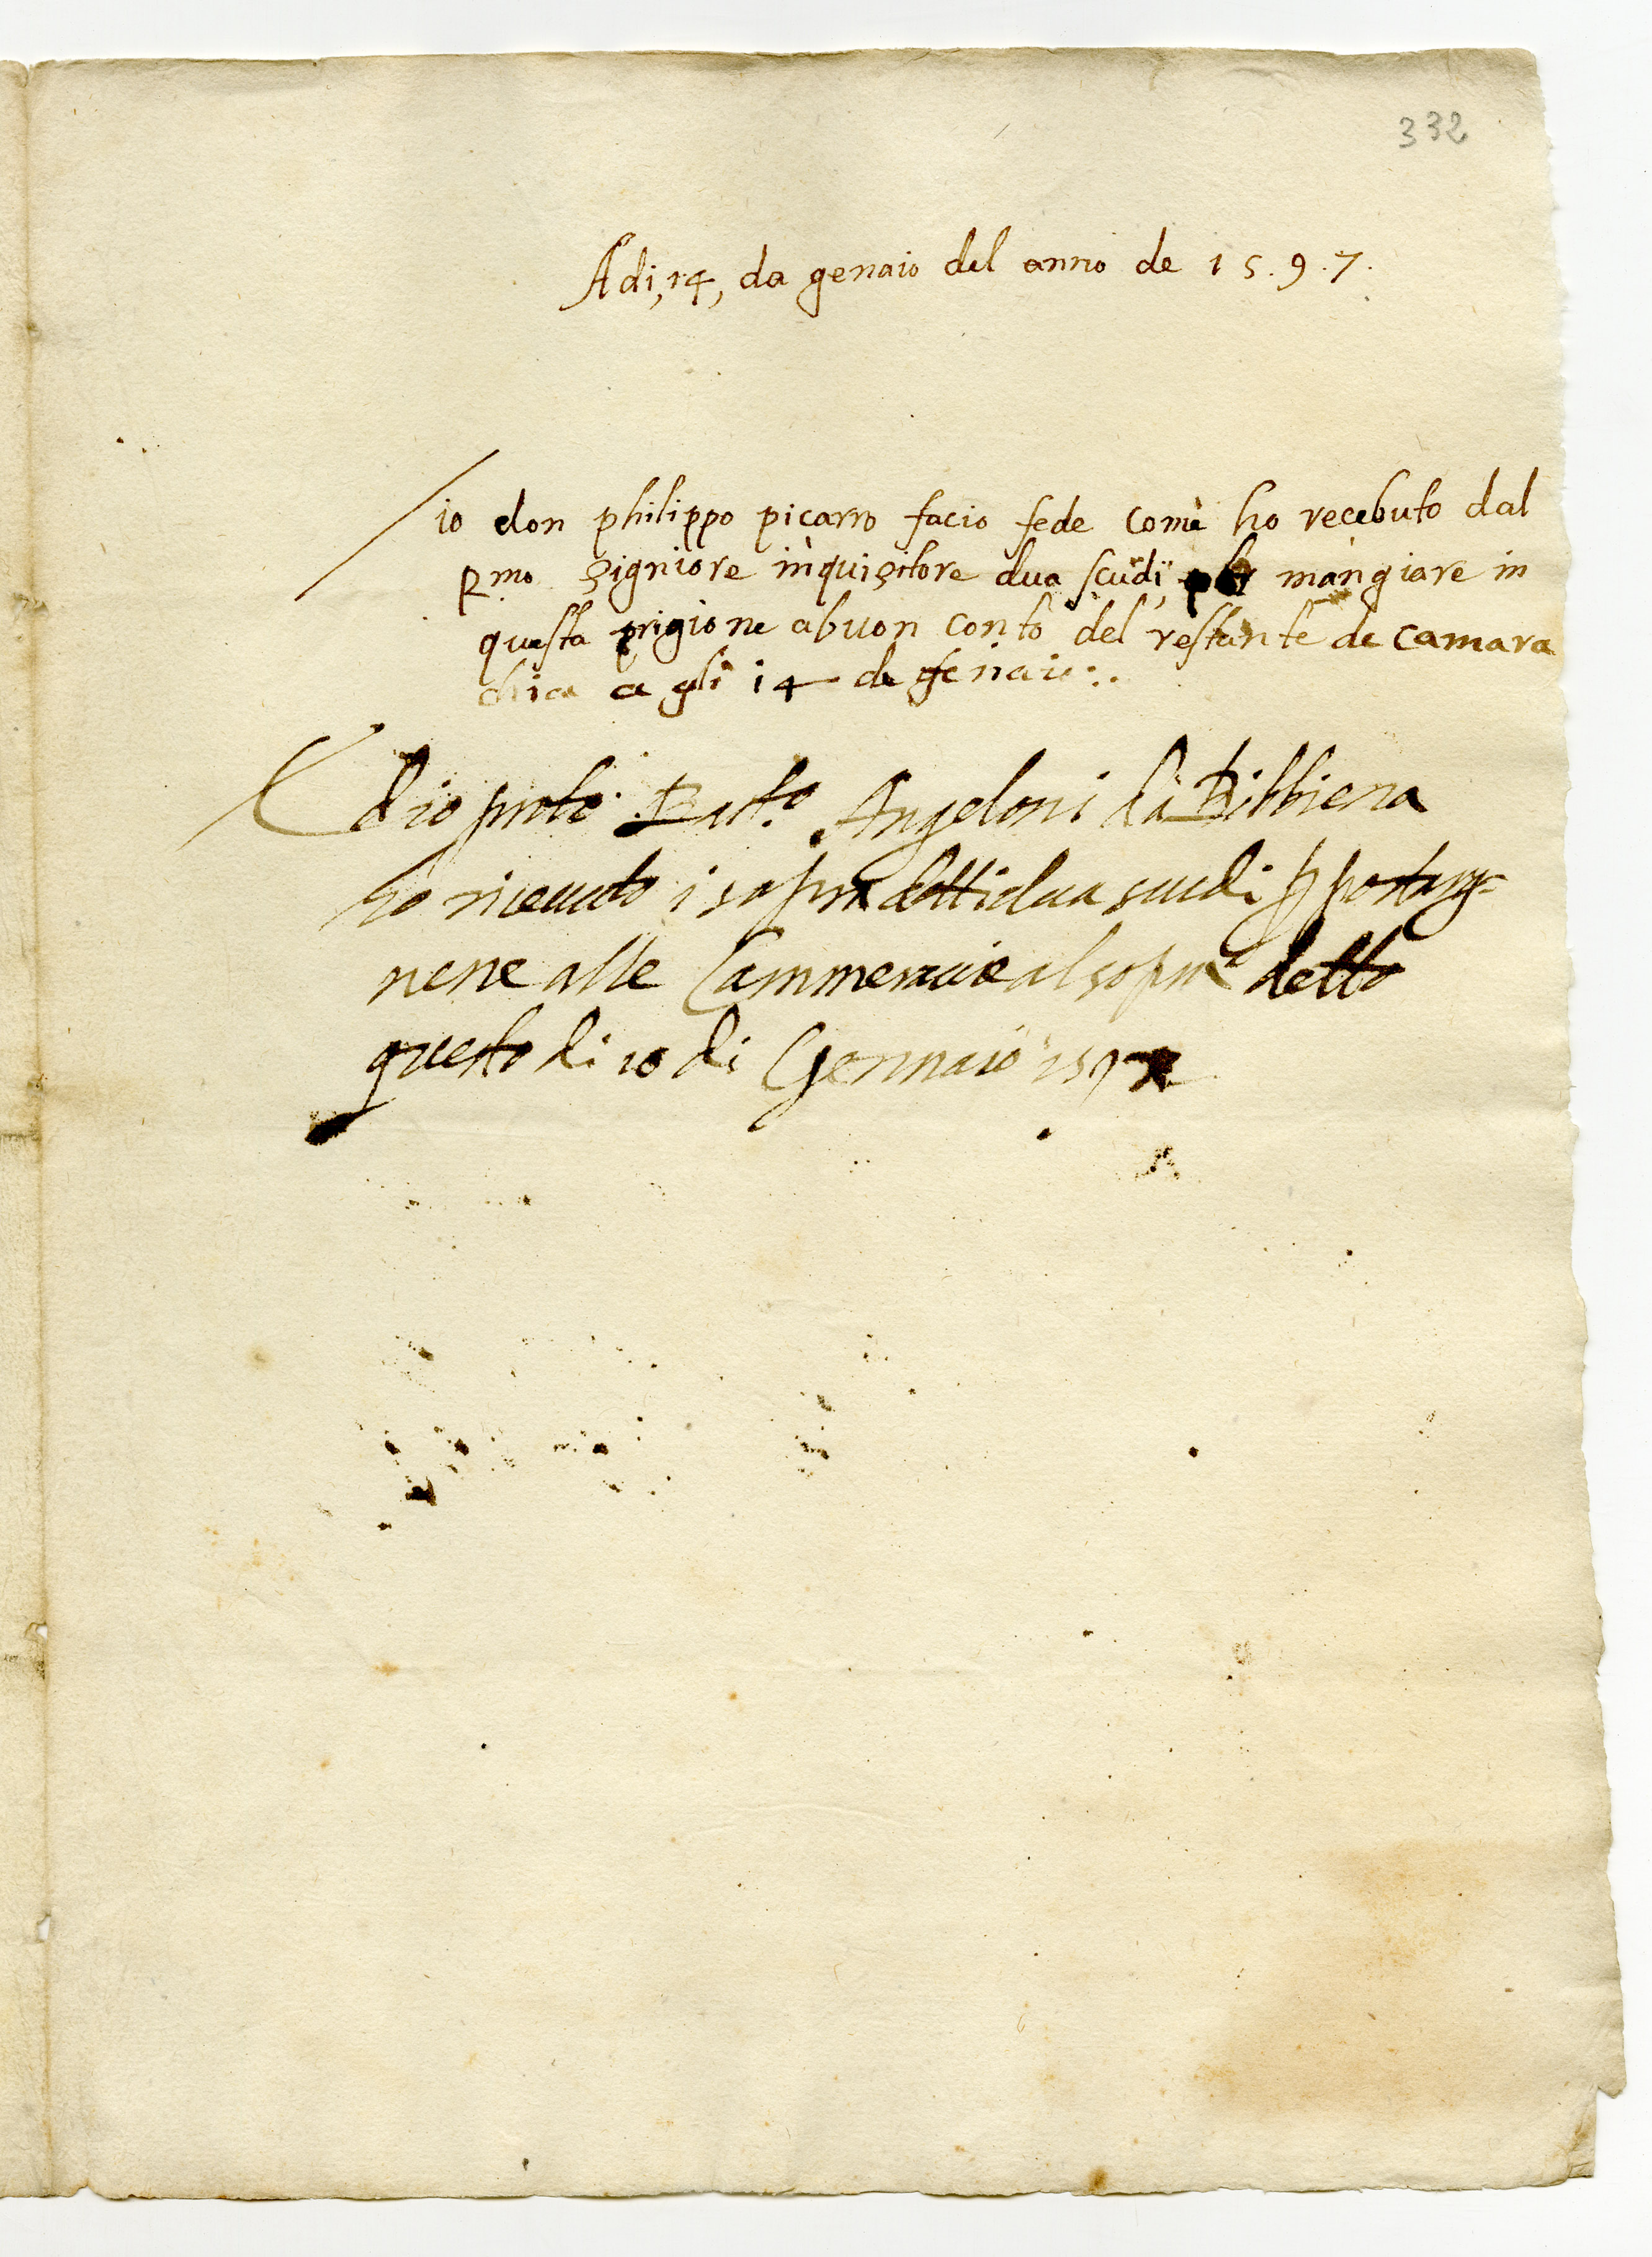 332
Adi, 14, da genaio del anno de 1 5 . 9 . 7 .
io don philippo picarro facio fede come ho recebuto dal
R.mo signiore inquisitore dua scudi, per mangiare in
questa prigione abuon conto del restante de camara
a gli 14 de genaio :.
Ed io Angeloni da Bibbiena
hò riceuuto i sopra dettidua scudi p portarg=
nene alle al sopra detto
questo di di Gennaio 159